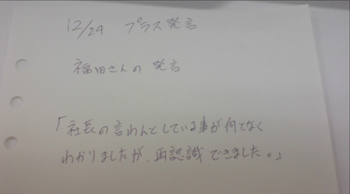 12/24 プラス発言
福田さんの 発言
「社長の言わんとしている事が何てなく
わかりましたが、再認識できました。」